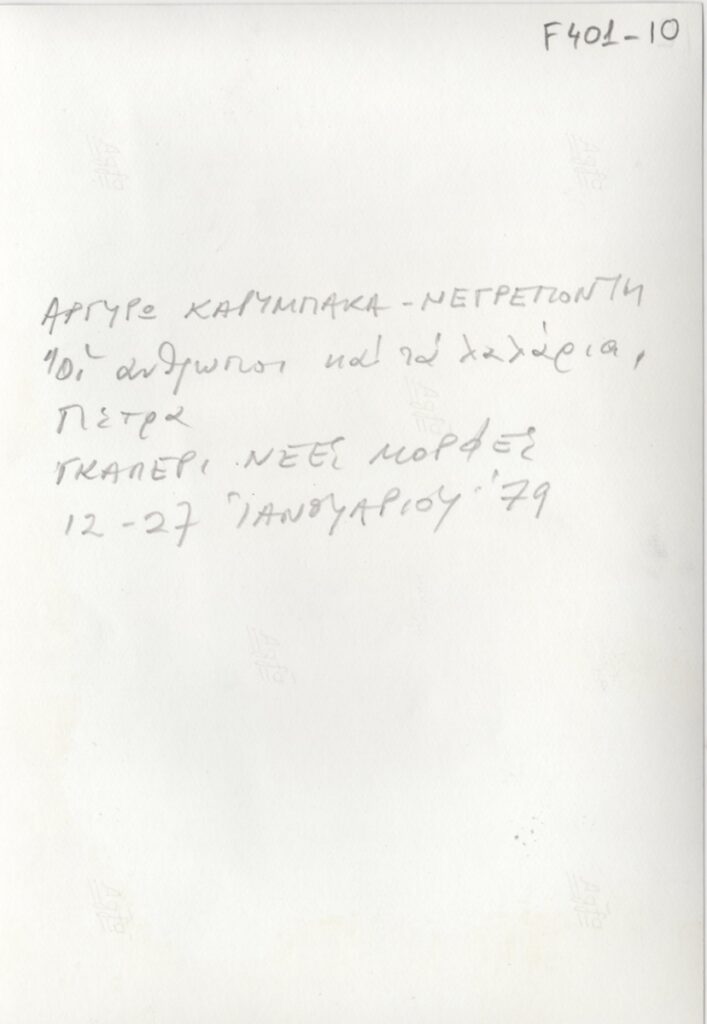 F401-10
ΑΡΓΥΡΩ ΚΑΡΥΜΠΑΚΑ - ΝΕΓΡΕΠΟΝΤΗ
"Οἱ ἄνθρωποι καί τά λαλάρια,
Πέτρα
ΓΚΑΛΕΡΙ ΝΕΕΣ ΜΟΡΦΕΣ
12-27 ἸΑΝΟΥΑΡΙΟΥ '79